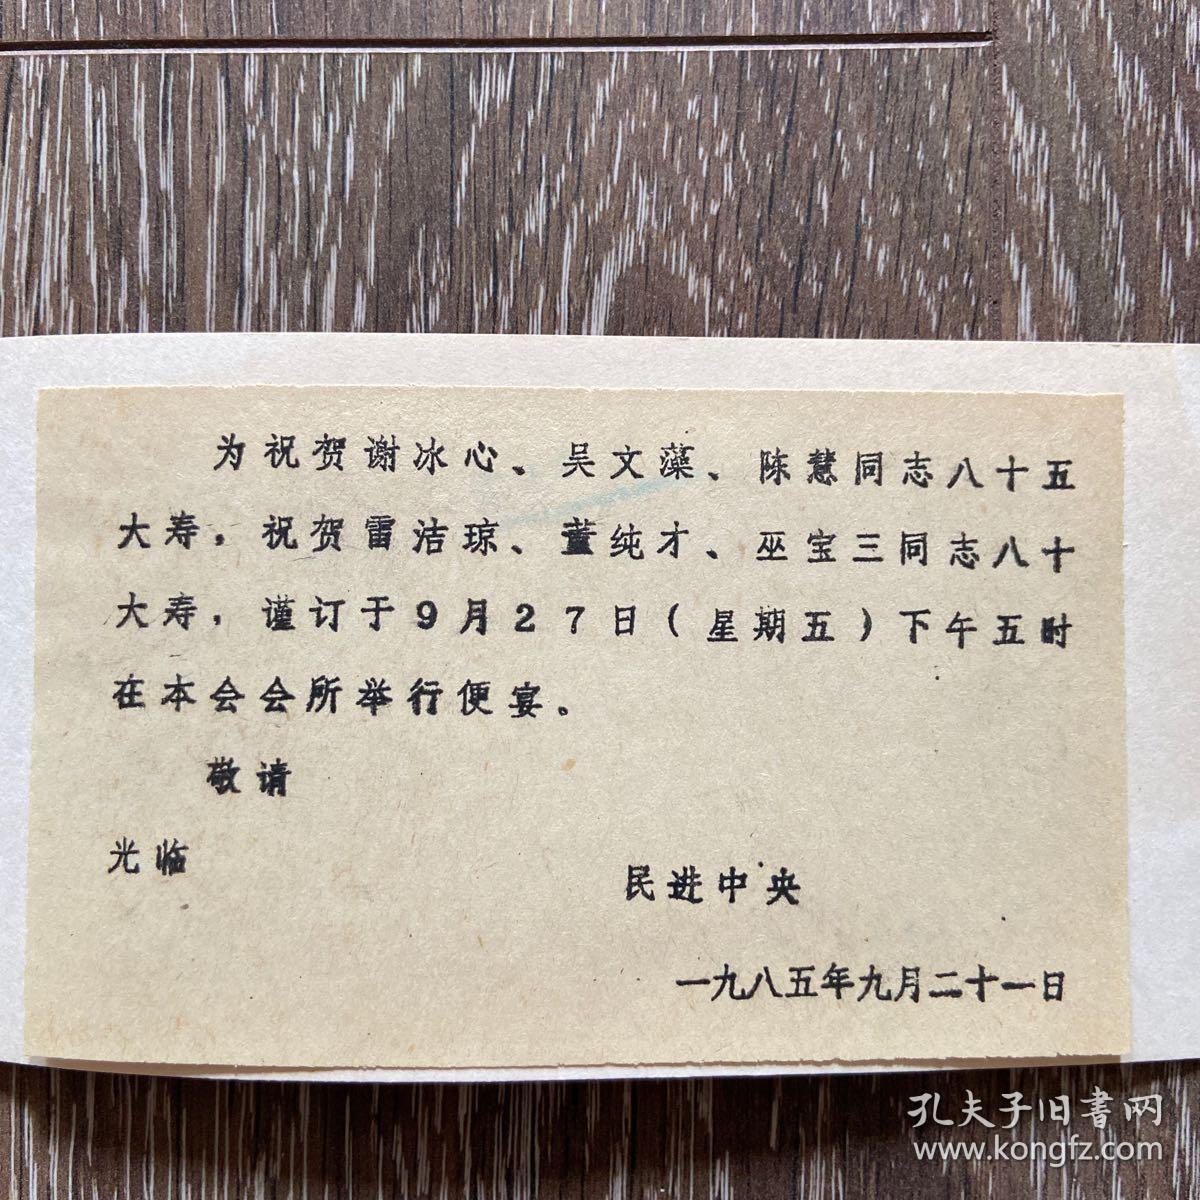 为祝贺谢冰心、吴文藻、陈慧同志八十五
大寿，祝贺雷洁琼、董纯才、巫宝三同志八十
大寿，谨订于9月27日(星期五)下午五时
在本会会所举行便宴。
敬请
光临
民进中央
一九八五年九月二十一日
孔夫子旧書网
www.kongfz.com